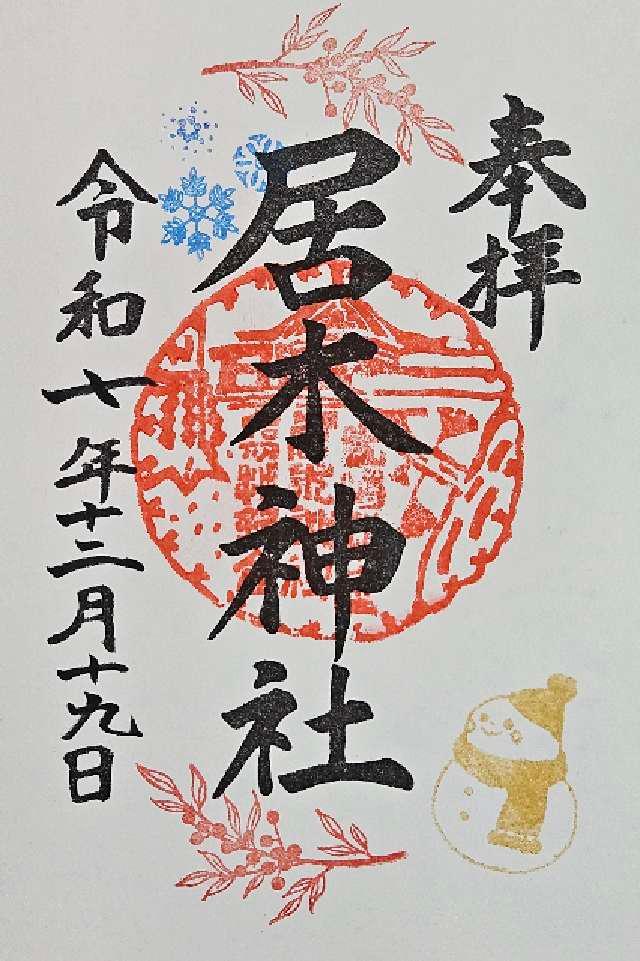 奉拝
居木神社
令和七年十二月十九日